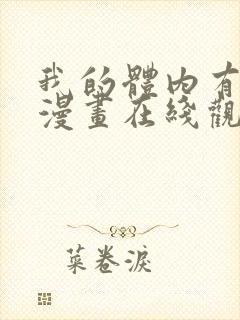 我的體内有
漫畫在綫觀
菜卷淚